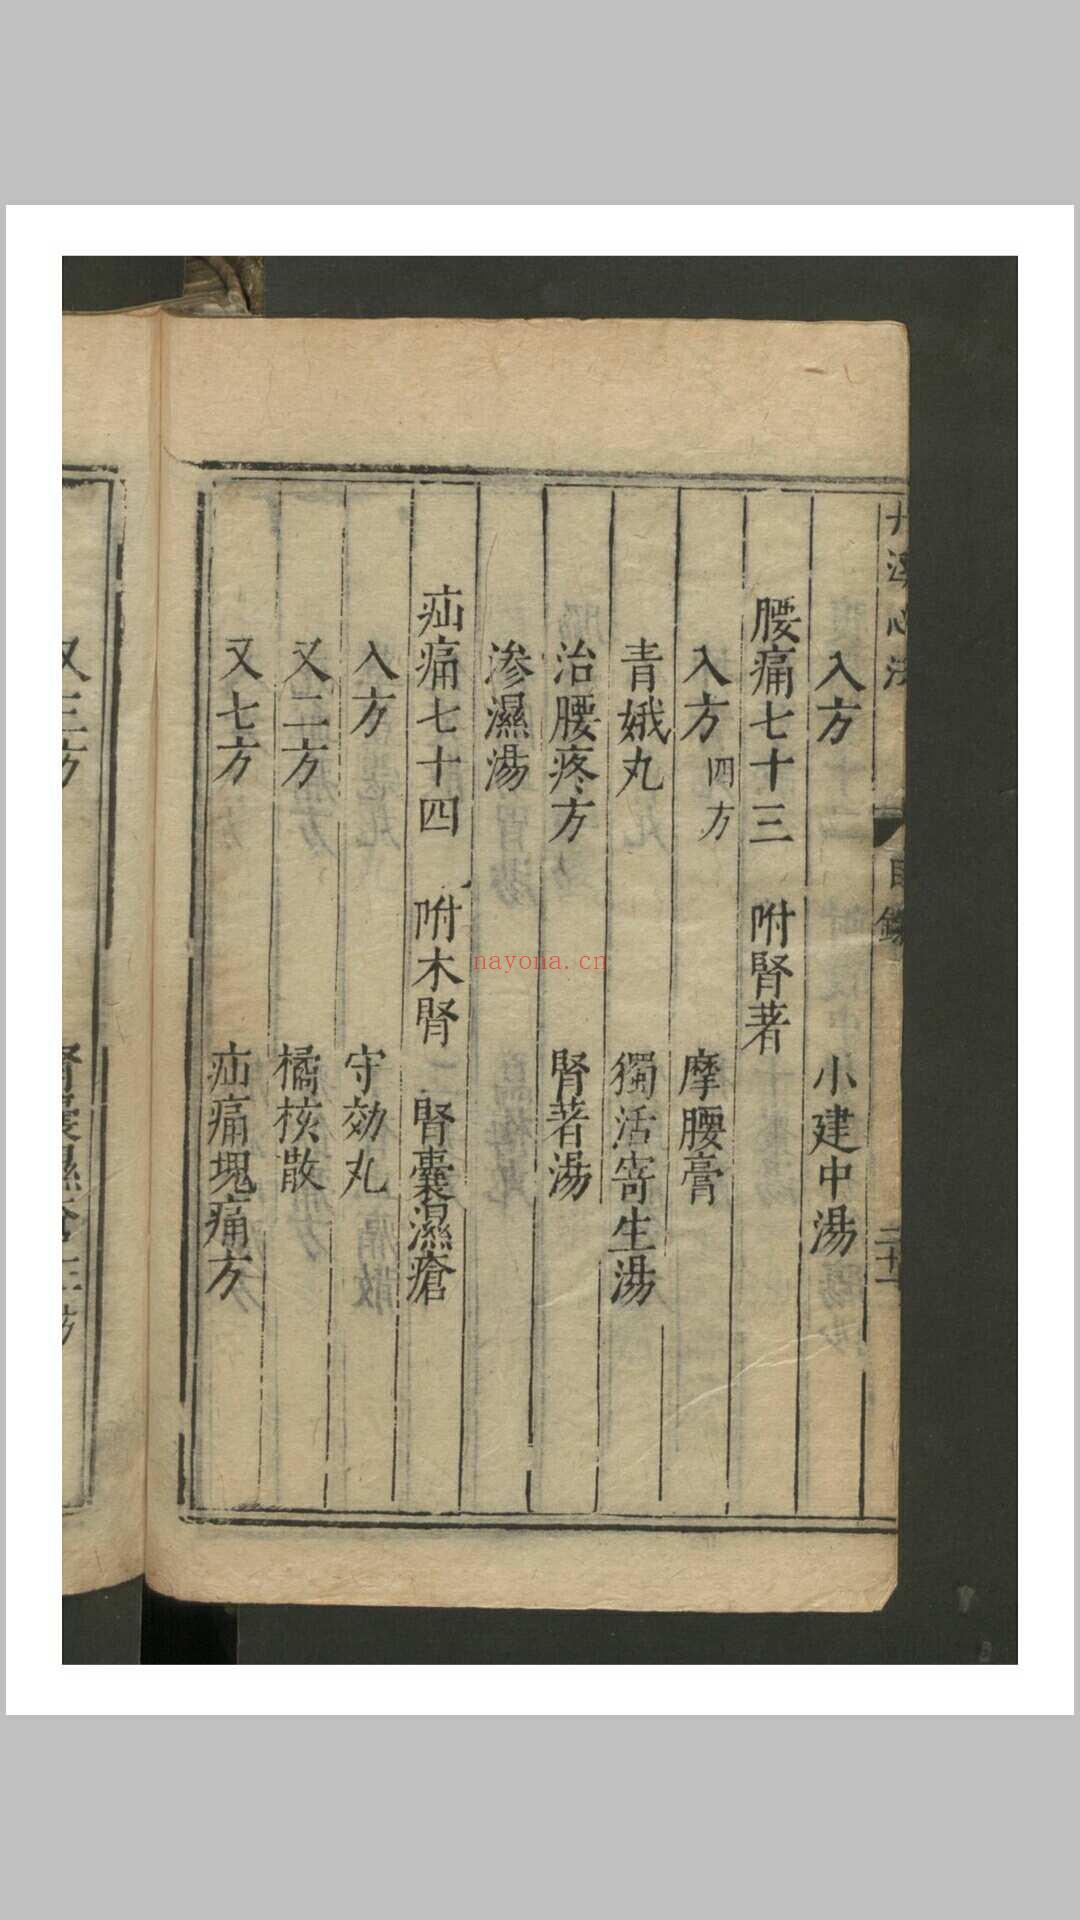 丹溪心法 目錄 二十一
入方 小建中湯
腰痛七十三 附腎著
入方 四方 摩腰膏
青娥丸 獨活寄生湯
治腰疼方 腎著湯
滲濕湯
疝痛七十四 附木腎 腎囊濕瘡
入方 守効丸
又二方 橘核散
又七方 疝痛塊痛方
又三方 腎囊濕瘡三方
nayona.cn